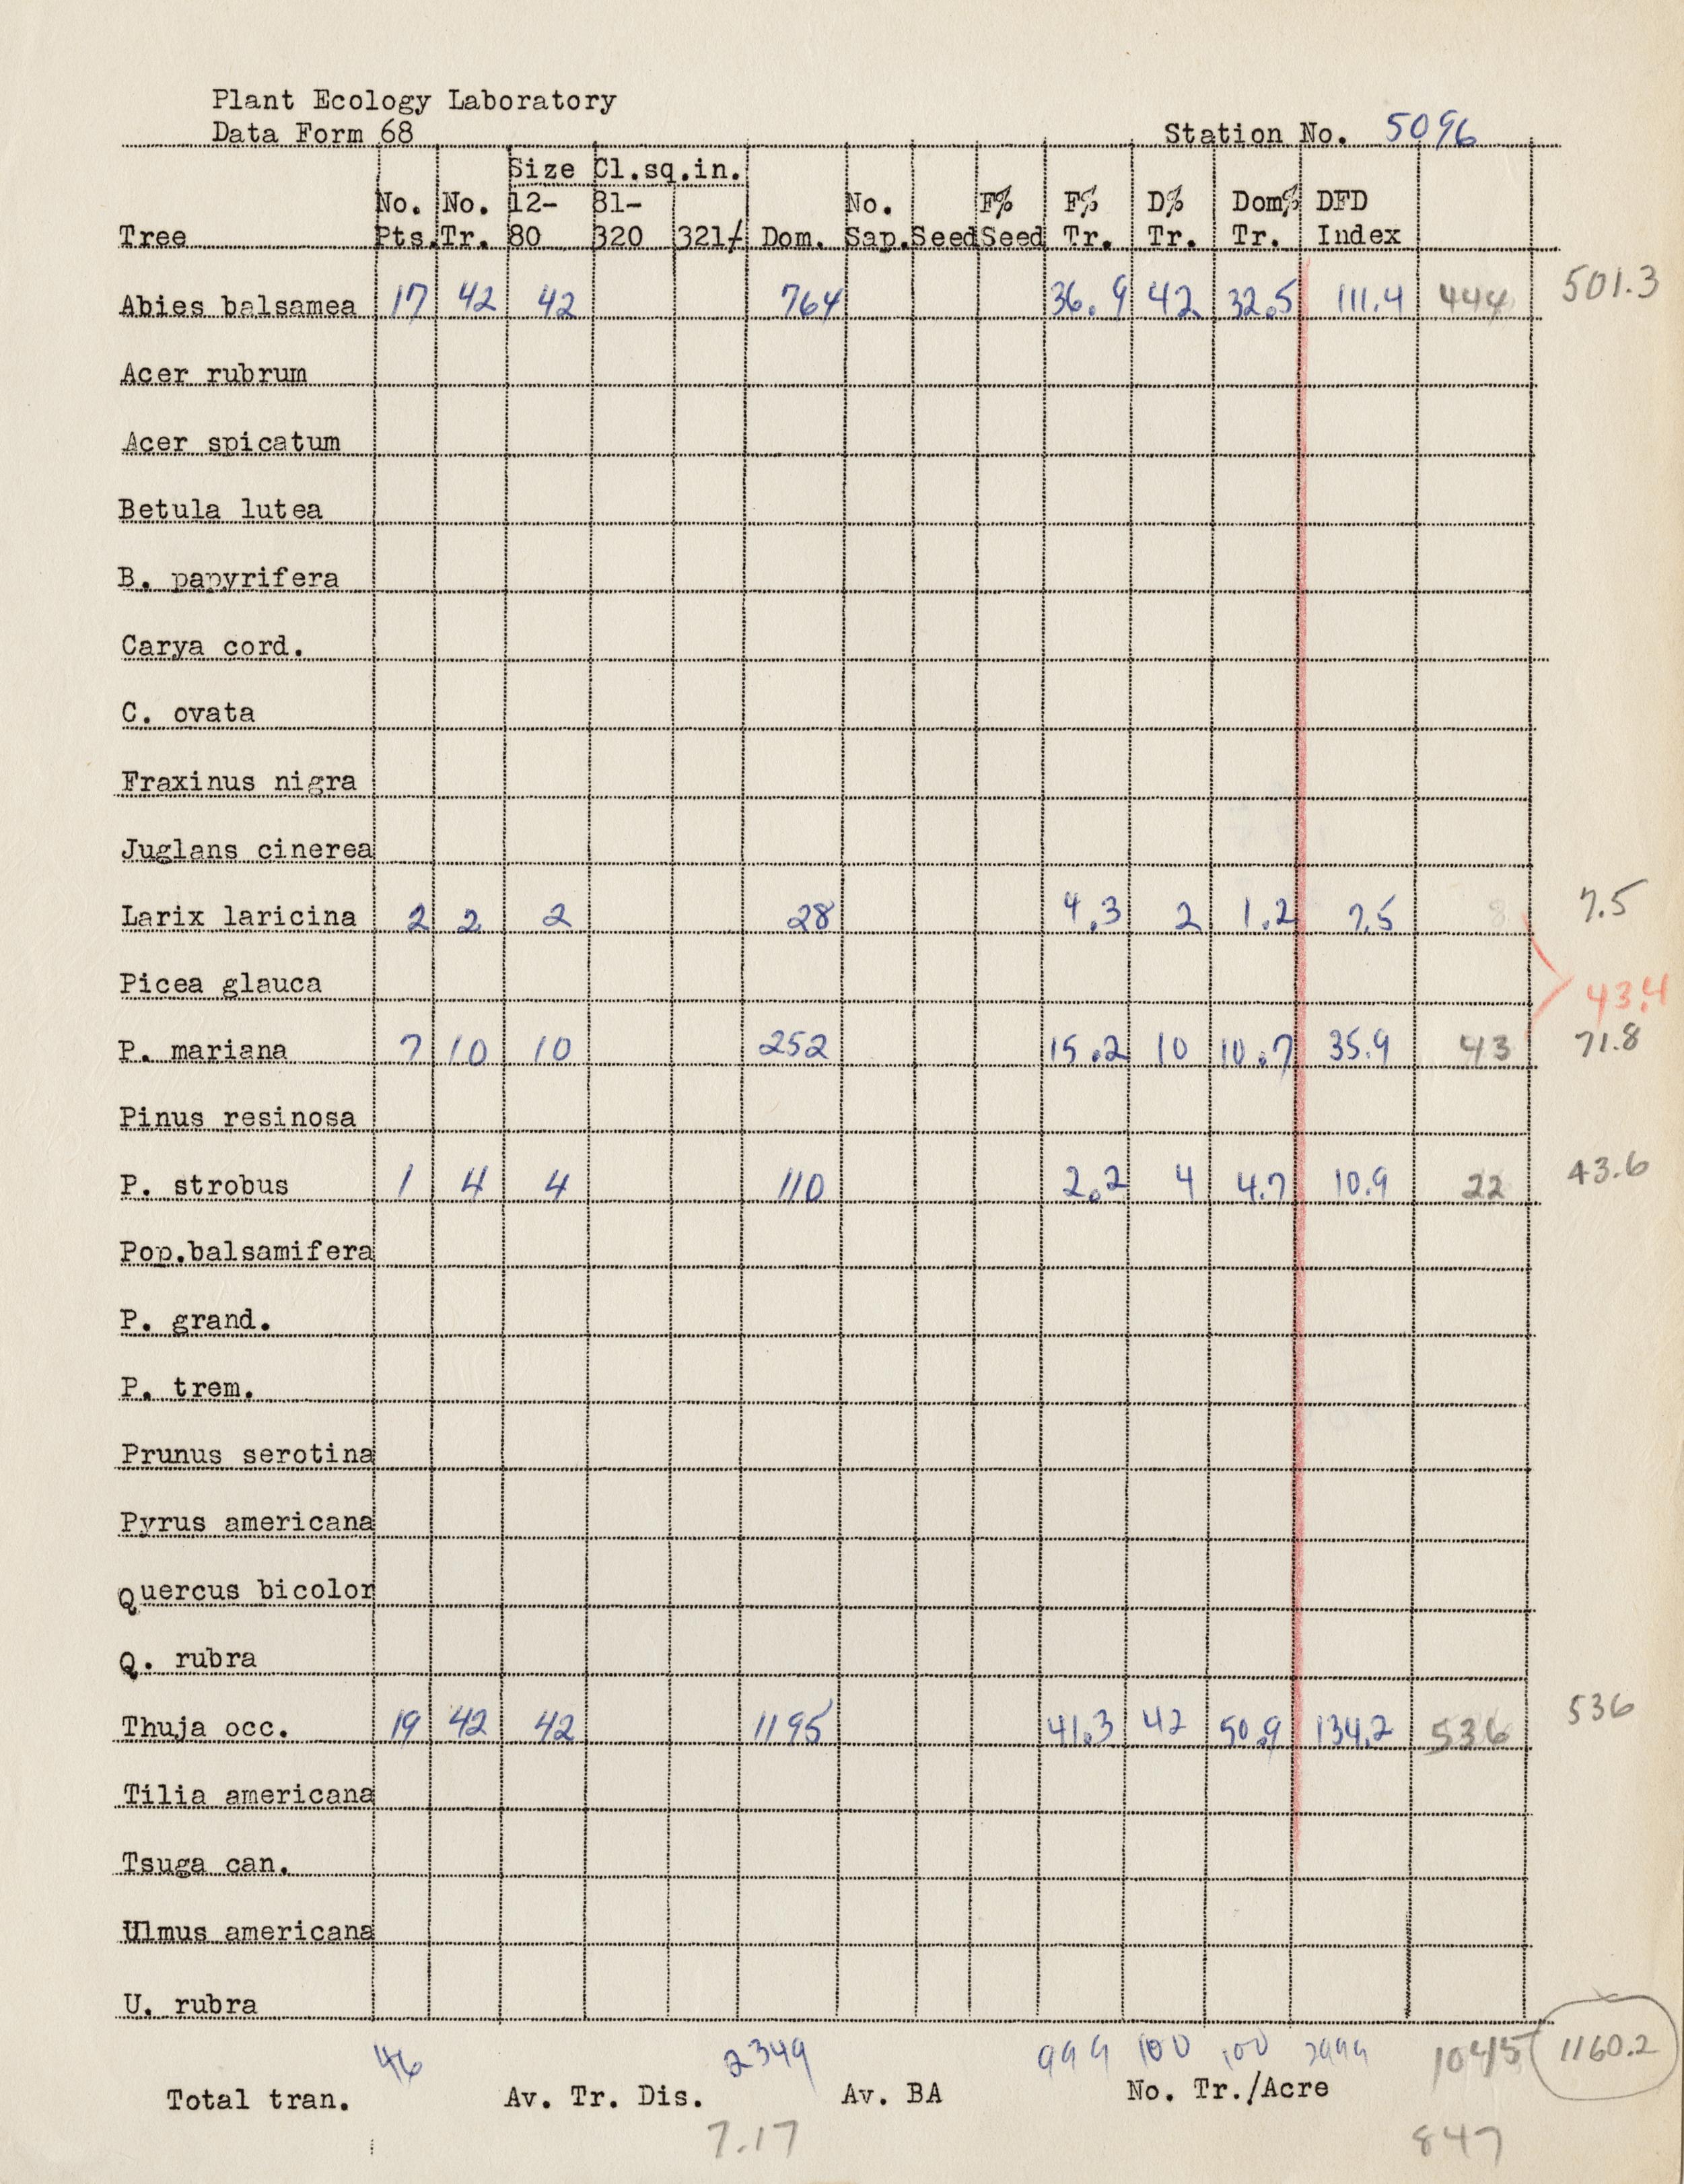 Plant Ecology Laboratory
Data Form 68
Station No. 5096
Size Cl.sq.in.
No. No. 12- 81- No. F% F% D% Dom% DFD
Tree Pts. Tr. 80 320 321+ Dom. Sap. Seed Seed Tr. Tr. Tr. Index
Abies balsamea 17 42 42 764 36.9 42 32.5 111.4 444 501.3
Acer rubrum
Acer spicatum
Betula lutea
B. papyrifera
Carya cord.
C. ovata
Fraxinus nigra
Juglans cinerea
Larix laricina 2 2 2 28 4.3 2 1.2 7.5 8 7.5
Picea glauca
43.4
P. mariana 7 10 10 252 15.2 10 10.7 35.9 43 71.8
Pinus resinosa
P. strobus 1 4 4 110 2.2 4 4.7 10.9 22 43.6
Pop.balsamifera
P. grand.
P. trem.
Prunus serotina
Pyrus americana
Quercus bicolor
Q. rubra
Thuja occ. 19 42 42 1195 41.3 42 50.9 134.2 536 536
Tilia americana
Tsuga can.
Ulmus americana
U. rubra
46 2349 99.9 100 100 299.9 1045 1160.2
Total tran. Av. Tr. Dis. Av. BA No. Tr./Acre
7.17 847